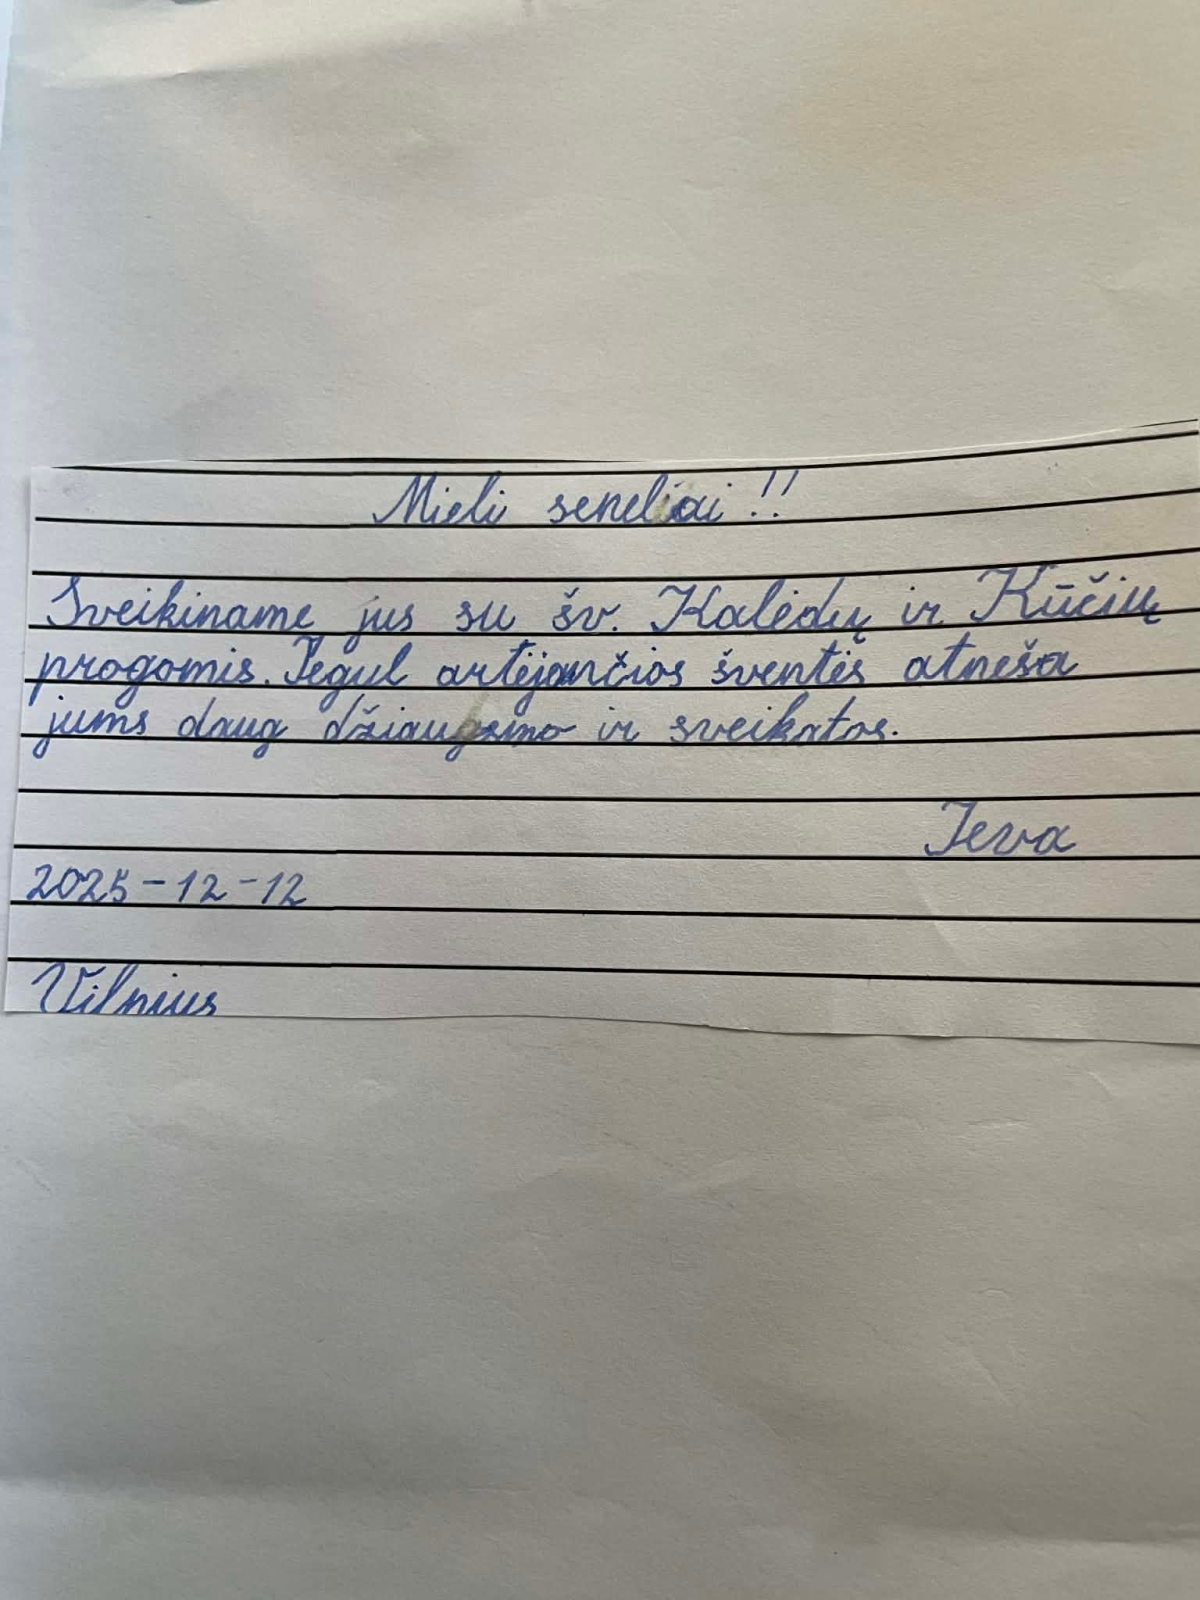 Mieli seneliai!!
Sveikiname jus su šv. Kalėdų ir Kūčių
progomis. Tegul artėjančios šventės atneša
jums daug džiaugsmo ir sveikatos.
Ieva
2025-12-12
Vilnius